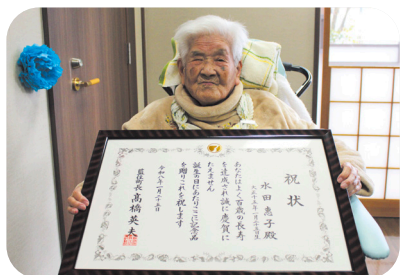 祝状
水田惠子殿
あなたはよく百歳の長寿
を達成され誠に慶賀に
たえません
誕生日にあたりここに記念品
を贈りこれを祝します
令和八年一月二十五日
髙橋英夫